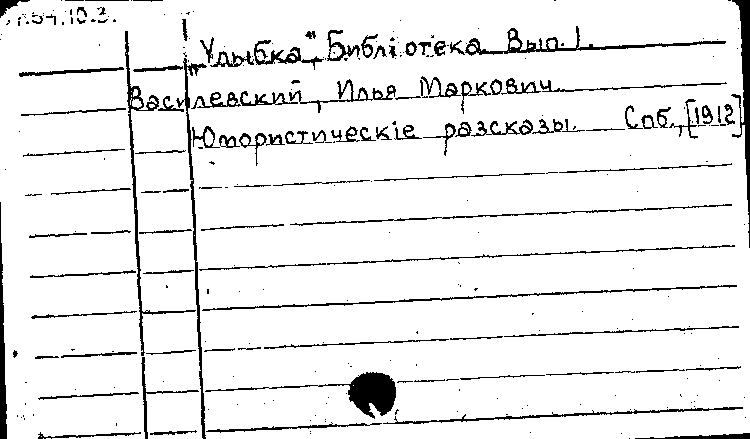 „Улыбка“, Библіотека Вып. 1.
Василевский, Илья Маркович
Юмористическіе разсказы. Спб., [1912]